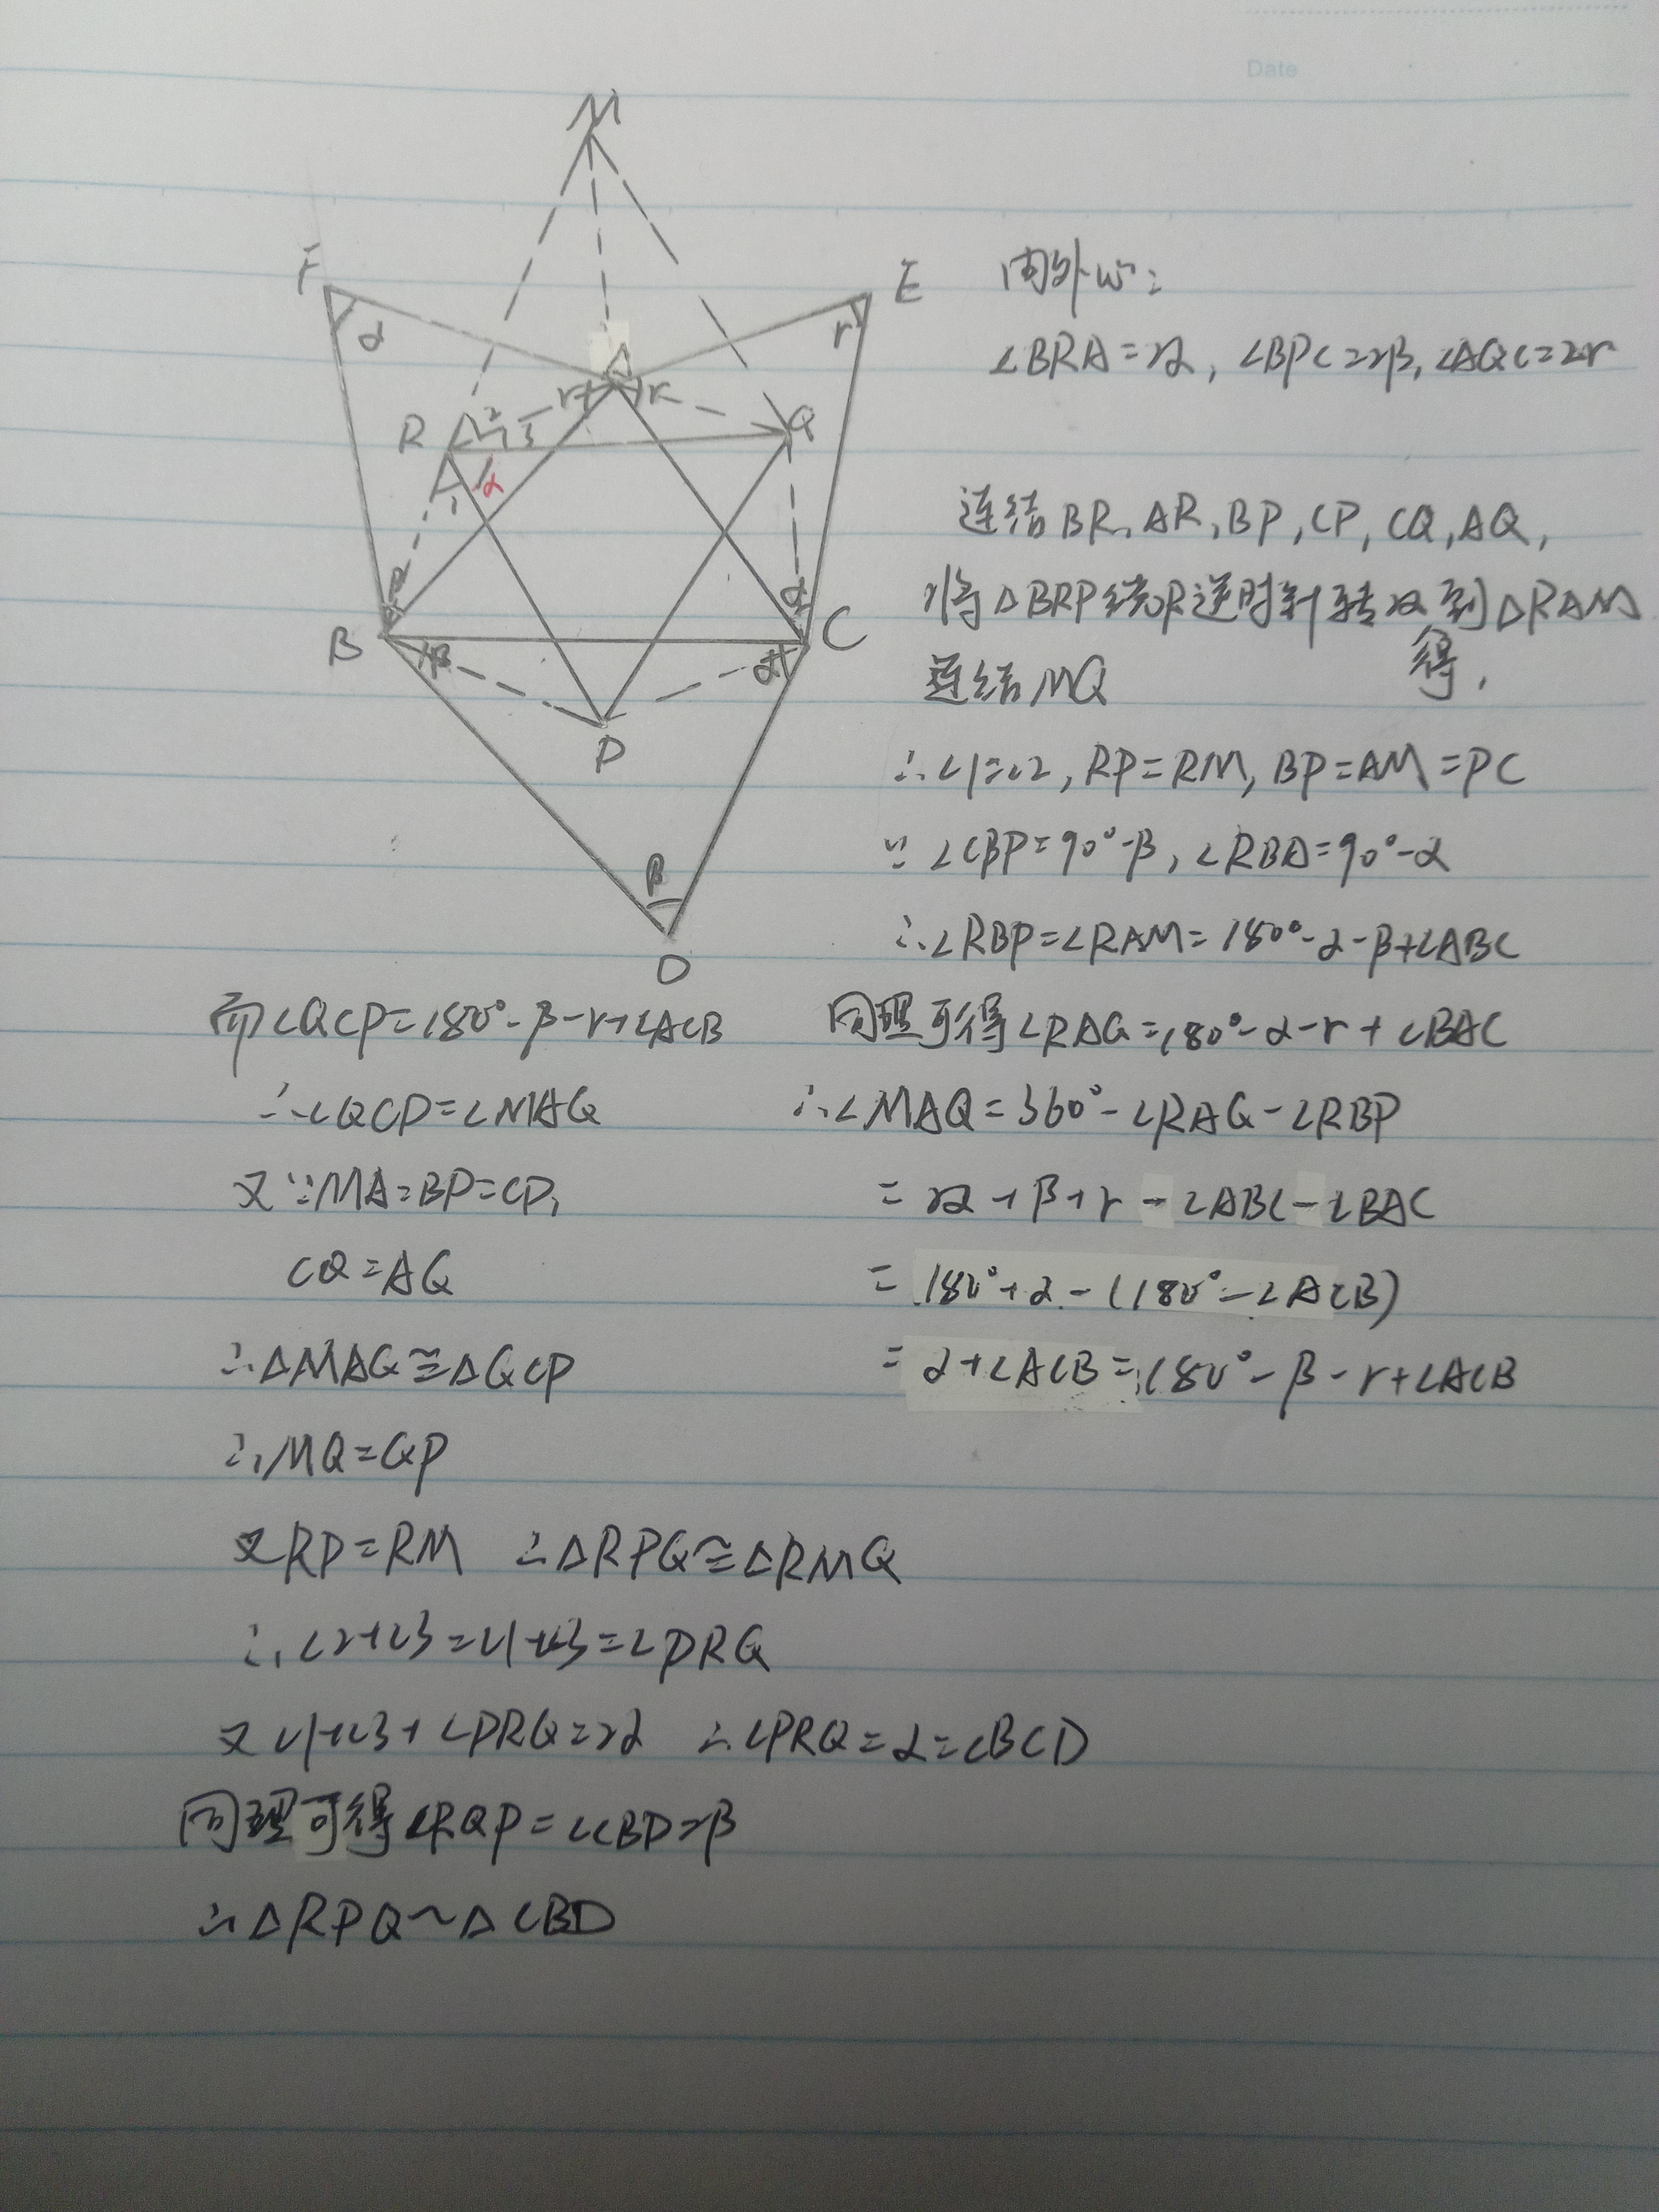 Date
M
F
E
α
r
A
r
r
R
2
3
Q
1
α
β
α
B
C
β
α
P
β
D
由外心:
∠BRA=2α, ∠BPC=2β, ∠AQC=2r
连结BR, AR, BP, CP, CQ, AQ,
将△BRP绕R逆时针转2α到△RAM
得,
连结MQ
∴∠1=∠2, RP=RM, BP=AM=PC
∵∠CBP=90°-β, ∠RBA=90°-α
∴∠RBP=∠RAM=180°-α-β+∠ABC
同理可得∠RAQ=180°-α-r+∠BAC
∴∠MAQ=360°-∠RAQ-∠RBP
=2α+β+r-∠ABC-∠BAC
=180°+α-(180°-∠ACB)
=α+∠ACB=180°-β-r+∠ACB
而∠QCP=180°-β-r+∠ACB
∴∠QCP=∠MAQ
又∵MA=BP=CP,
CQ=AQ
∴△MAQ≅△QCP
∴MQ=QP
又RP=RM ∴△RPQ≅△RMQ
∴∠2+∠3=∠1+∠3=∠PRQ
又∠1+∠3+∠PRQ=2α ∴∠PRQ=α=∠BCD
同理可得∠RQP=∠CBD=β
∴△RPQ∽△CBD